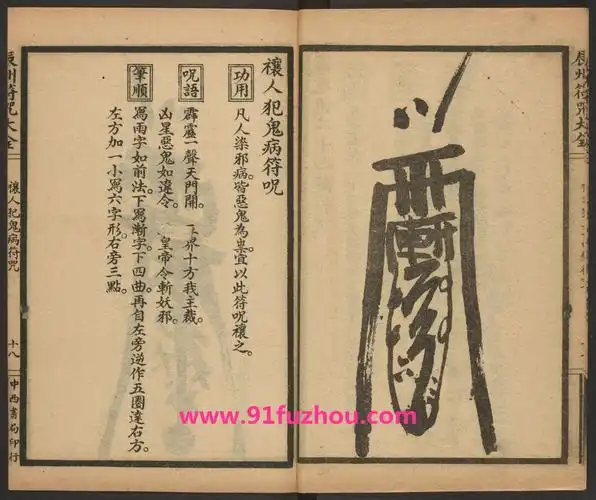 辰州符咒大全
禳人犯鬼病符呪
功用
凡人染邪病。皆惡鬼為祟。宜以此符呪禳之。
呪語
霹靂一聲天門開。下界十方我主裁。
凶星惡鬼如違令。皇帝令斬妖邪。
筆順
寫雨字如前法。下寫漸字。下四曲。再自左旁逆作五圈達右方。
左方加一小寫六字形。右旁三點。
辰州符咒大全
禳人犯鬼病符咒
十八
中西書局印行
www.91fuzhou.com